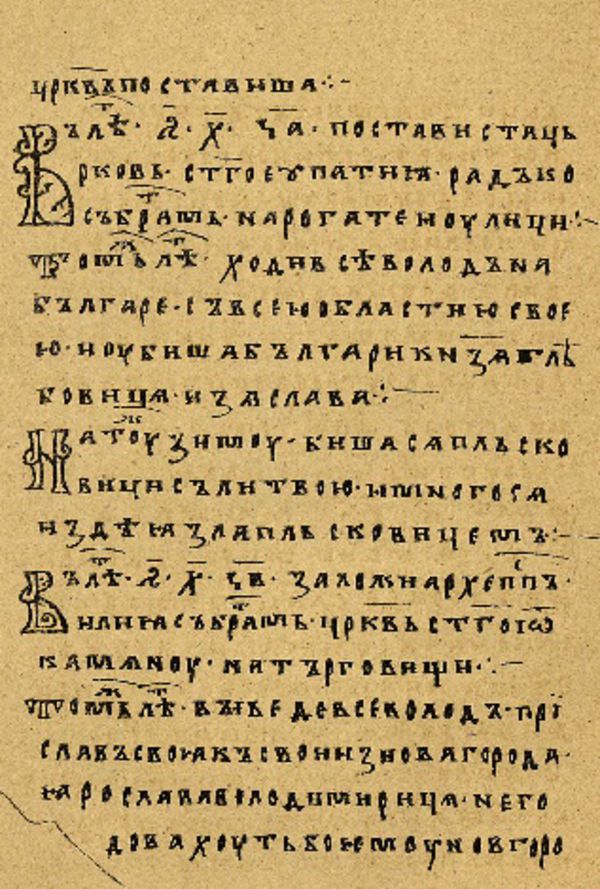 цркъвь поставиша :·~
Въ лѣ · ҂ѕ҃ · х҃ · ч҃а · постависта ць
рковь · ст҃го еупатия · радъко
съ братѡмь · на рогатеи оулици :~
Томь лѣ · ходи всѣволодъ на
българе · съ всею областию свое
ю · и оубиша българи кн҃зя глѣ
бовиця · изаслава :~
На ту зимоу · биша ся пльско
вици съ литвою · и много ся
издѣя зла пльсковицемъ :~
Въ лѣ · ҂ѕ҃ · х҃ · ч҃в · заложи архепп҃ъ ·
илия съ братѡмь · црквь ст҃го іѡ
камяноу · на търговищи :~
Томь лѣ · выведе всеволодъ · прі
слявъ своякъ свои из новагорода ·
ярослава володимириця · него
довахоуть бо ѥмоу новгоро